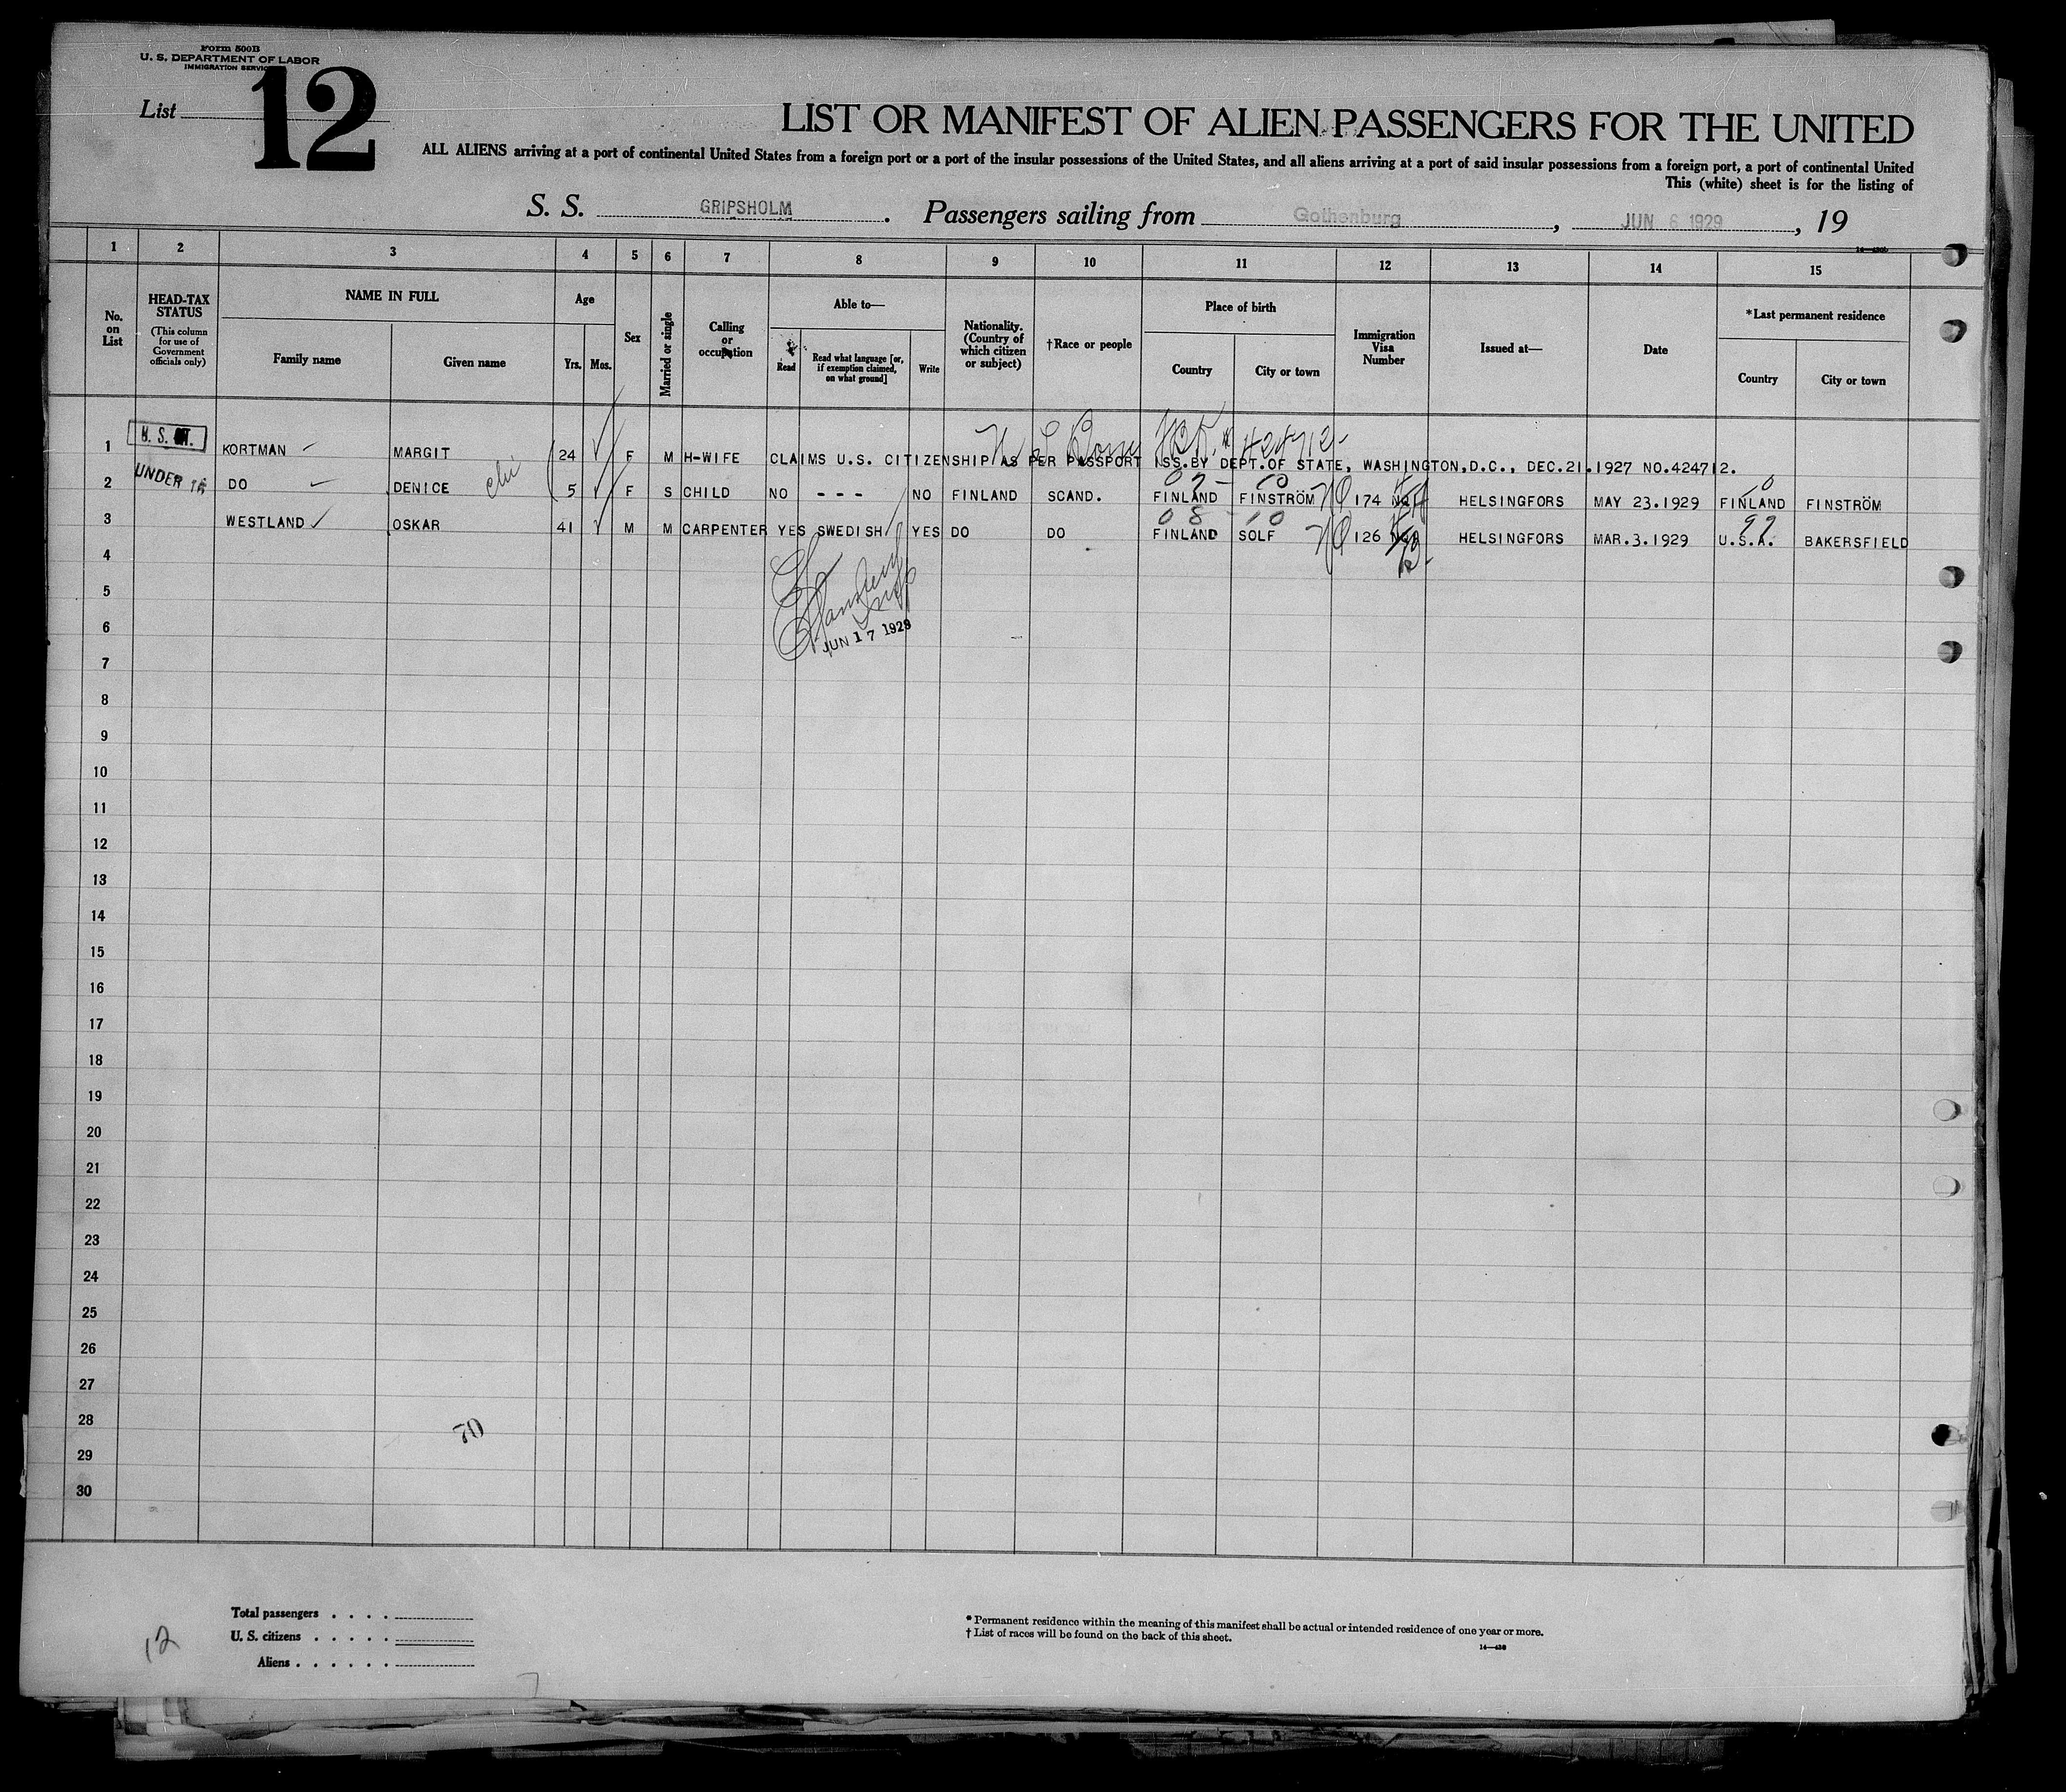 Form 500B
U. S. DEPARTMENT OF LABOR
IMMIGRATION SERVICE
List 12
LIST OR MANIFEST OF ALIEN PASSENGERS FOR THE UNITED
ALL ALIENS arriving at a port of continental United States from a foreign port or a port of the insular possessions of the United States, and all aliens arriving at a port of said insular possessions from a foreign port, a port of continental United
This (white) sheet is for the listing of
S. S. GRIPSHOLM. Passengers sailing from Gothenburg, JUN 6 1929, 19
1 2 3 4 5 6 7 8 9 10 11 12 13 14 15
No. on List
HEAD-TAX STATUS (This column for use of Government officials only)
NAME IN FULL
Family name Given name
Age
Yrs. Mos.
Sex
Married or single
Calling or occupation
Able to—
Read Read what language [or, if exemption claimed, on what ground] Write
Nationality. (Country of which citizen or subject)
†Race or people
Place of birth
Country City or town
Immigration Visa Number
Issued at—
Date
*Last permanent residence
Country City or town
1 U. S. KORTMAN MARGIT 24 F M H-WIFE CLAIMS U.S. CITIZENSHIP AS PER PASSPORT ISS.BY DEPT.OF STATE, WASHINGTON,D.C., DEC.21.1927 NO.424712.
424712
2 UNDER 16 DO DENICE 5 F S CHILD NO - - - NO FINLAND SCAND. FINLAND FINSTRÖM 174 HELSINGFORS MAY 23.1929 FINLAND FINSTRÖM
3 WESTLAND OSKAR 41 M M CARPENTER YES SWEDISH YES DO DO FINLAND SOLF 126 HELSINGFORS MAR.3.1929 U.S.A. BAKERSFIELD
4
5
6
JUN 17 1929
7
8
9
10
11
12
13
14
15
16
17
18
19
20
21
22
23
24
25
26
27
28
70
29
30
Total passengers . . . .
U. S. citizens . . . . .
Aliens . . . . . .
12
* Permanent residence within the meaning of this manifest shall be actual or intended residence of one year or more.
† List of races will be found on the back of this sheet.
14—430